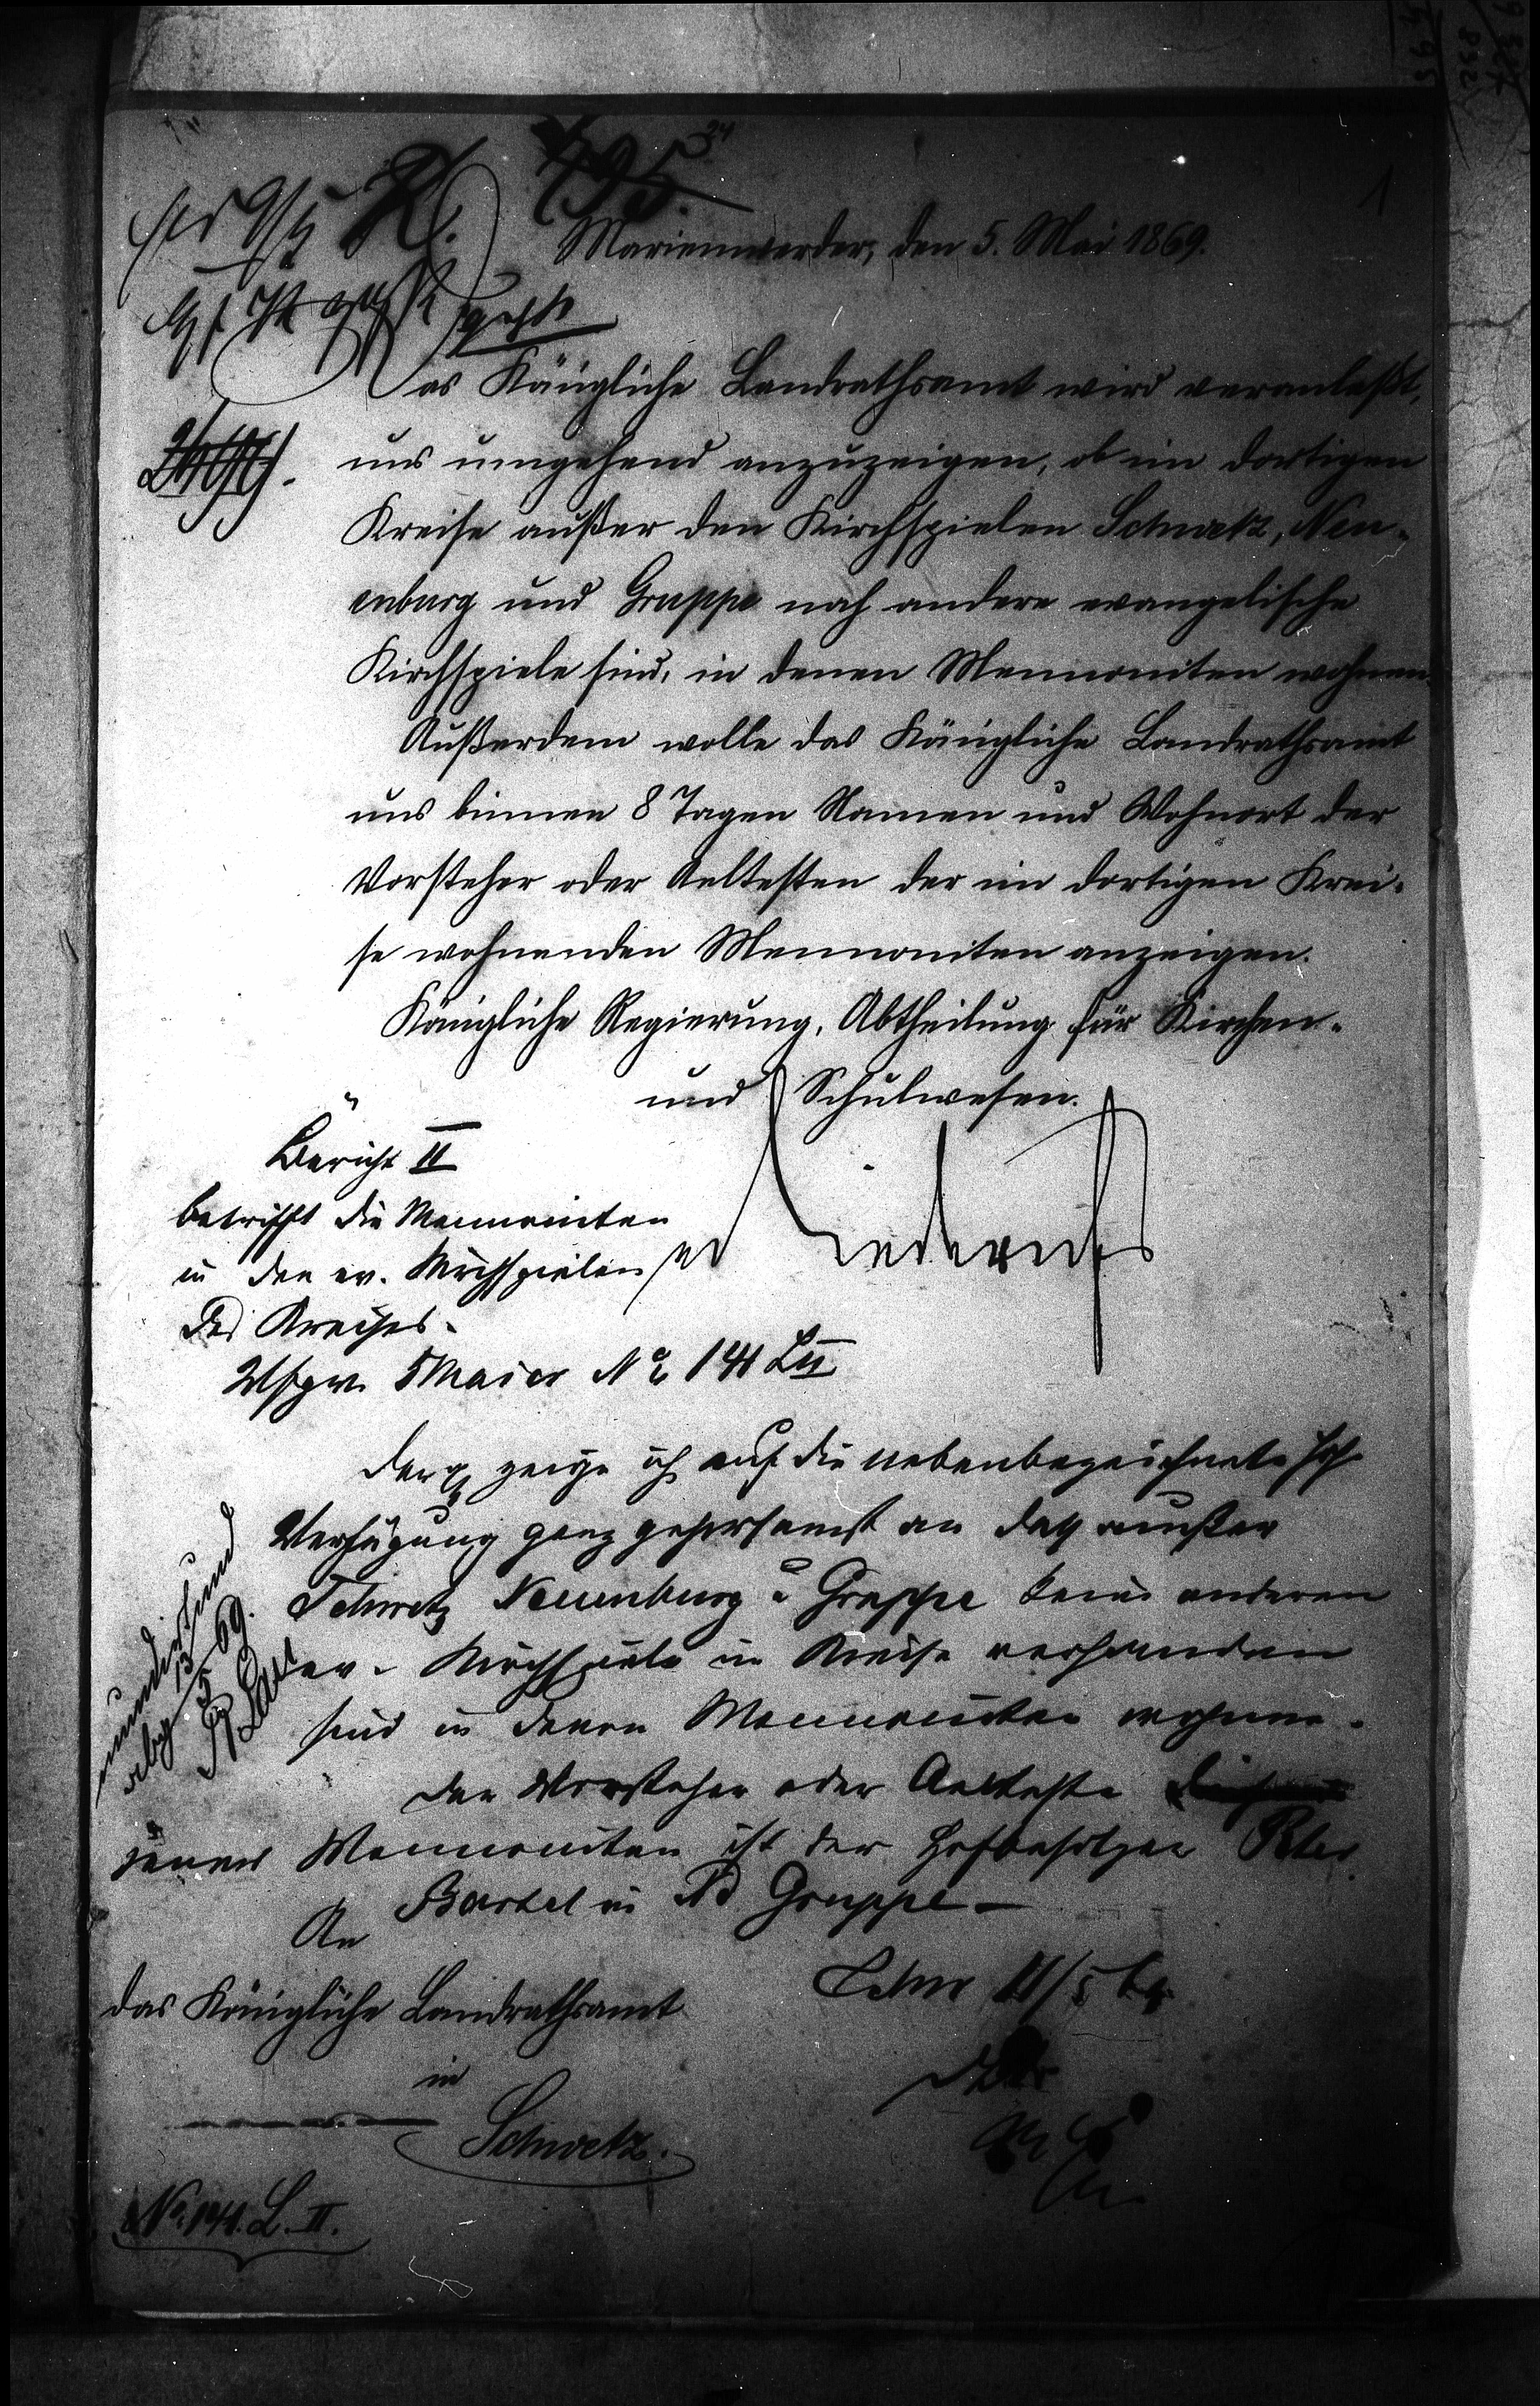 795
1
Marienwerder, den 5. Mai 1869.
Das Königliche Landrathsamt wird veranlaßt,
uns umgehend anzuzeigen, ob im dortigen
Kreise außer den Kirchspielen Schwetz, Neu-
enburg und Gruppe noch andere evangelische
Kirchspiele sind, in denen Mennoniten wohnen.
Außerdem wolle das Königliche Landrathsamt
uns binnen 8 Tagen Namen und Wohnort der
Vorsteher oder Aeltesten der im dortigen Krei-
se wohnenden Mennoniten anzeigen.
Königliche Regierung, Abtheilung für Kirchen-
und Schulwesen.
Bericht II
betrifft die Mennoniten
in den ev. Kirchspielen
des Kreises.
Vfgw. 5 Mai cr No 141 L II
zeige ich auf die nebenbezeichnete
Verfügung ganz gehorsamst an daß außer
Schwetz Neuenburg u Gruppe keine anderen
ev. Kirchspiele im Kreise vorhanden
sind in denen Mennoniten wohnen.
Der Vorsteher oder Aelteste
jener Mennoniten ist der Hofbesitzer Peter
Bartel in Nd Gruppe
mundirt und
abg 13/5 69.
An
das Königliche Landrathsamt
in
Schwetz.
Schw 11/5 69
No. 141. L. II.